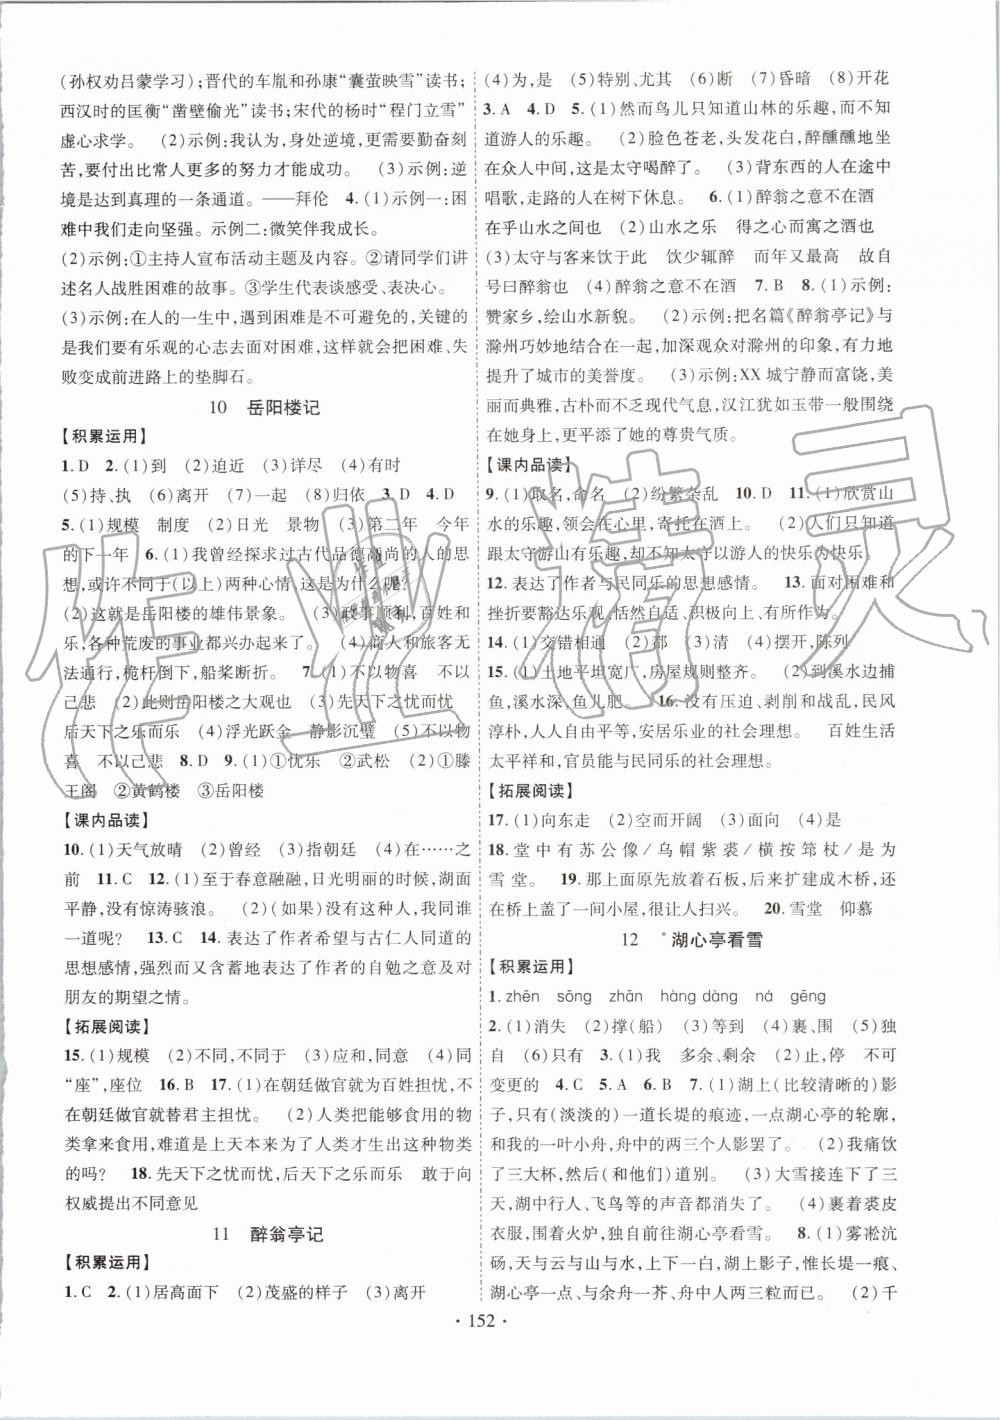 (孙权劝吕蒙学习);晋代的车胤和孙康“囊萤映雪”读书;
西汉时的匡衡“凿壁偷光”读书;宋代的杨时“程门立雪”
虚心求学。 (2)示例:我认为,身处逆境,更需要勤奋刻
苦,要付出比常人更多的努力才能成功。 (3)示例:逆
境是达到真理的一条通道。——拜伦 4.(1)示例一:困
难中我们走向坚强。示例二:微笑伴我成长。
(2)示例:①主持人宣布活动主题及内容。②请同学们讲
述名人战胜困难的故事。③学生代表谈感受、表决心。
(3)示例:在人的一生中,遇到困难是不可避免的,关键的
是我们要有乐观的心志去面对困难,这样就会把困难、失
败变成前进路上的垫脚石。
10 岳阳楼记
【积累运用】
1.D 2.(1)到 (2)迫近 (3)详尽 (4)有时
(5)持、执 (6)离开 (7)一起 (8)归依 3.D 4.D
5.(1)规模 制度 (2)日光 景物 (3)第二年 今年
的下一年 6.(1)我曾经探求过古代品德高尚的人的思
想,或许不同于(以上)两种心情,这是为什么呢?
(2)这就是岳阳楼的雄伟景象。 (3)政事顺利,百姓和
乐,各种荒废的事业都兴办起来了。 (4)商人和旅客无
法通行,桅杆倒下,船桨断折。 7.(1)不以物喜 不以
己悲 (2)此则岳阳楼之大观也 (3)先天下之忧而忧
后天下之乐而乐 (4)浮光跃金 静影沉璧 (5)不以物
喜 不以己悲 8.D 9.(1)①忧乐 ②武松 (2)①滕
王阁 ②黄鹤楼 ③岳阳楼
【课内品读】
10.(1)天气放晴 (2)曾经 (3)指朝廷 (4)在……之
前 11.C 12.(1)至于春意融融,日光明丽的时候,湖面
平静,没有惊涛骇浪。 (2)(如果)没有这种人,我同谁
一道呢? 13.C 14.表达了作者希望与古仁人同道的
思想感情,强烈而又含蓄地表达了作者的自勉之意及对
朋友的期望之情。
【拓展阅读】
15.(1)规模 (2)不同,不同于 (3)应和,同意 (4)同
“座”,座位 16.B 17.(1)在朝廷做官就为百姓担忧,
不在朝廷做官就替君主担忧。 (2)人类把能够食用的物
类拿来食用,难道是上天本来为了人类才生出这种物类
的吗? 18.先天下之忧而忧,后天下之乐而乐 敢于向
权威提出不同意见
11 醉翁亭记
【积累运用】
1.C 2.(1)居高面下 (2)茂盛的样子 (3)离开
(4)为,是 (5)特别、尤其 (6)断 (7)昏暗 (8)开花
3.A 4.D 5.(1)然而鸟儿只知道山林的乐趣,而不知
道游人的乐趣。 (2)脸色苍老,头发花白,醉醺醺地坐
在众人中间,这是太守喝醉了。 (3)背东西的人在途中
唱歌,走路的人在树下休息。 6.(1)醉翁之意不在酒
在乎山水之间也 (2)山水之乐 得之心而寓之酒也
(3)太守与客来饮于此 饮少辄醉 而年又最高 故自
号曰醉翁也 (4)醉翁之意不在酒 7.B 8.(1)示例:
赞家乡,绘山水新貌。 (2)示例:把名篇《醉翁亭记》与
滁州巧妙地结合在一起,加深观众对滁州的印象,有力地
提升了城市的美誉度。 (3)示例:XX城宁静而富饶,美
丽而典雅,古朴而不乏现代气息,汉江犹如玉带一般围绕
在她身上,更平添了她的尊贵气质。
【课内品读】
9.(1)取名,命名 (2)纷繁杂乱 10.D 11.(1)欣赏山
水的乐趣,领会在心里,寄托在酒上。 (2)人们只知道
跟太守游山有乐趣,却不知太守以游人的快乐为快乐。
12.表达了作者与民同乐的思想感情。 13.面对困难和
挫折要豁达乐观,恬然自适、积极向上、有所作为。
14.(1)交错相通 (2)都 (3)清 (4)摆开,陈列
15.(1)土地平坦宽广,房屋规则整齐。 (2)到溪水边捕
鱼,溪水深,鱼儿肥。 16.没有压迫、剥削和战乱,民风
淳朴,人人自由平等,安居乐业的社会理想。 百姓生活
太平祥和,官员能与民同乐的社会理想。
【拓展阅读】
17.(1)向东走 (2)空而开阔 (3)面向 (4)是
18.堂中有苏公像/乌帽紫裘/横按筇杖/是为
雪堂。 19.那上面原先放着石板,后来扩建成木桥,还
在桥上盖了一间小屋,很让人扫兴。 20.雪堂 仰慕
12 *湖心亭看雪
【积累运用】
1.zhēn sōng zhān hàng dàng ná gēng
2.(1)消失 (2)撑(船) (3)等到 (4)裹、围 (5)独
自 (6)只有 3.(1)我 多余、剩余 (2)止,停 不可
变更的 4.C 5.A 6.B 7.(1)湖上(比较清晰的)影
子,只有(淡淡的)一道长堤的痕迹,一点湖心亭的轮廓,
和我的一叶小舟,舟中的两三个人影罢了。 (2)我痛饮
了三大杯,然后(和他们)道别。 (3)大雪接连下了三
天,湖中行人、飞鸟等的声音都消失了。 (4)裹着裘皮
衣服,围着火炉,独自前往湖心亭看雪。 8.(1)雾凇沆
砀,天与云与山与水,上下一白,湖上影子,惟长堤一痕、
湖心亭一点、与余舟一芥、舟中人两三粒而已。 (2)千
· 152 ·
作业精灵